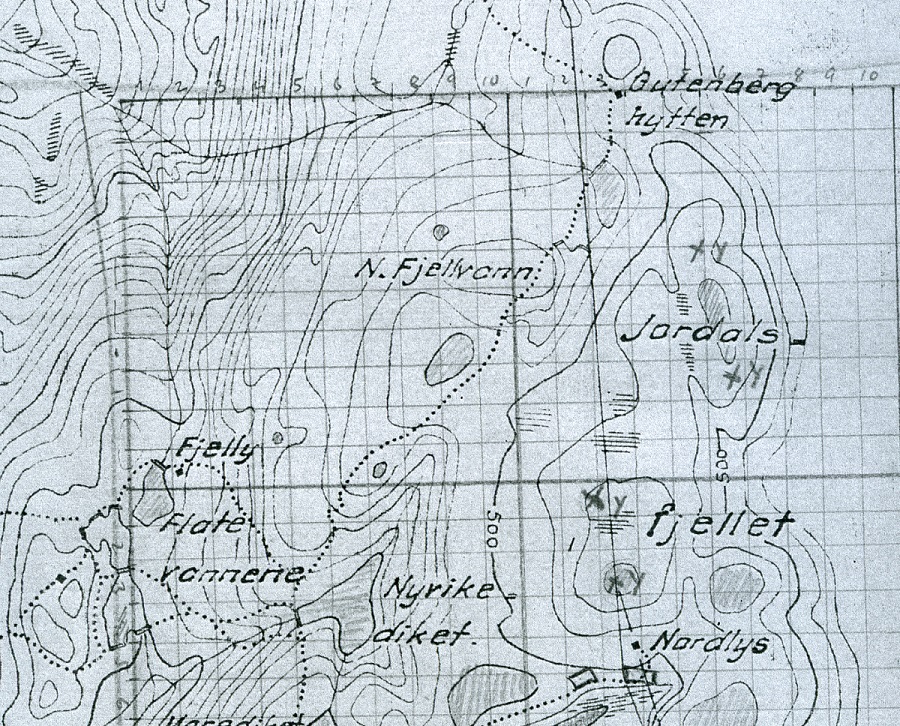 1 2 3 4 5 6 7 8 9 10 1 2 3 7 8 9 10
Gutenberg
hytten
N. Fjellvann
Jordals
Fjelly
500
Flate
500
fjellet
vannene
Nyrike-
diket.
Nordlys
X Y
X Y
X Y
X Y